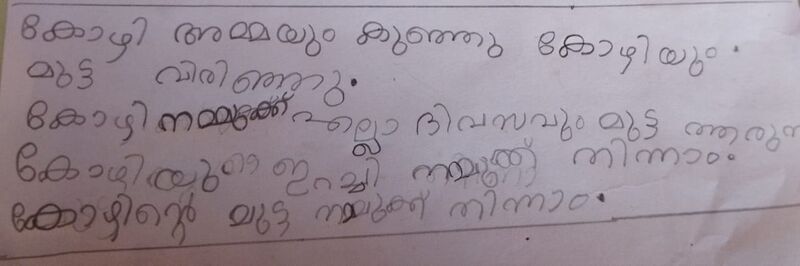 കോഴി അമ്മയും കുഞ്ഞു കോഴിയും.
മുട്ട വിരിഞ്ഞു.
കോഴി നമ്മുക്ക് എല്ലാ ദിവസവും മുട്ട തരുന
കോഴിയുടെ ഇറച്ചി നമുക്ക് തിന്നാം.
കോഴിന്റെ മുട്ട നമുക്ക് തിന്നാം.